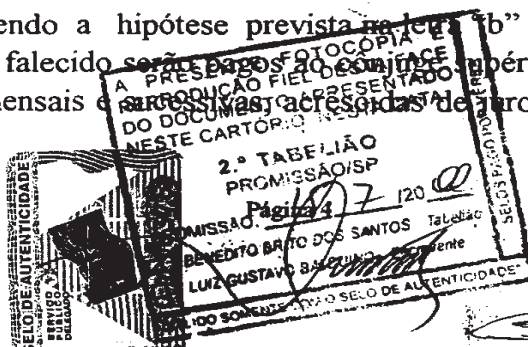 endo a hipótese prevista na letra "b"
falecido serão pagos ao cônjuge supér
mensais e sucessivas, acrescidas de juro
A PRESENTE FOTOCÓPIA É
REPRODUÇÃO FIEL DESTA FACE
DO DOCUMENTO APRESENTADO
NESTE CARTÓRIO NESTA DATA
2.º TABELIÃO
PROMISSÃO/SP
Página 4
7 /20 00
BENEDITO BRITO DOS SANTOS Tabelião
LUIZ GUSTAVO
SOMENTE O SELO DE AUTENTICIDADE"
SELOS PAGO POR
SELO DE AUTENTICIDADE